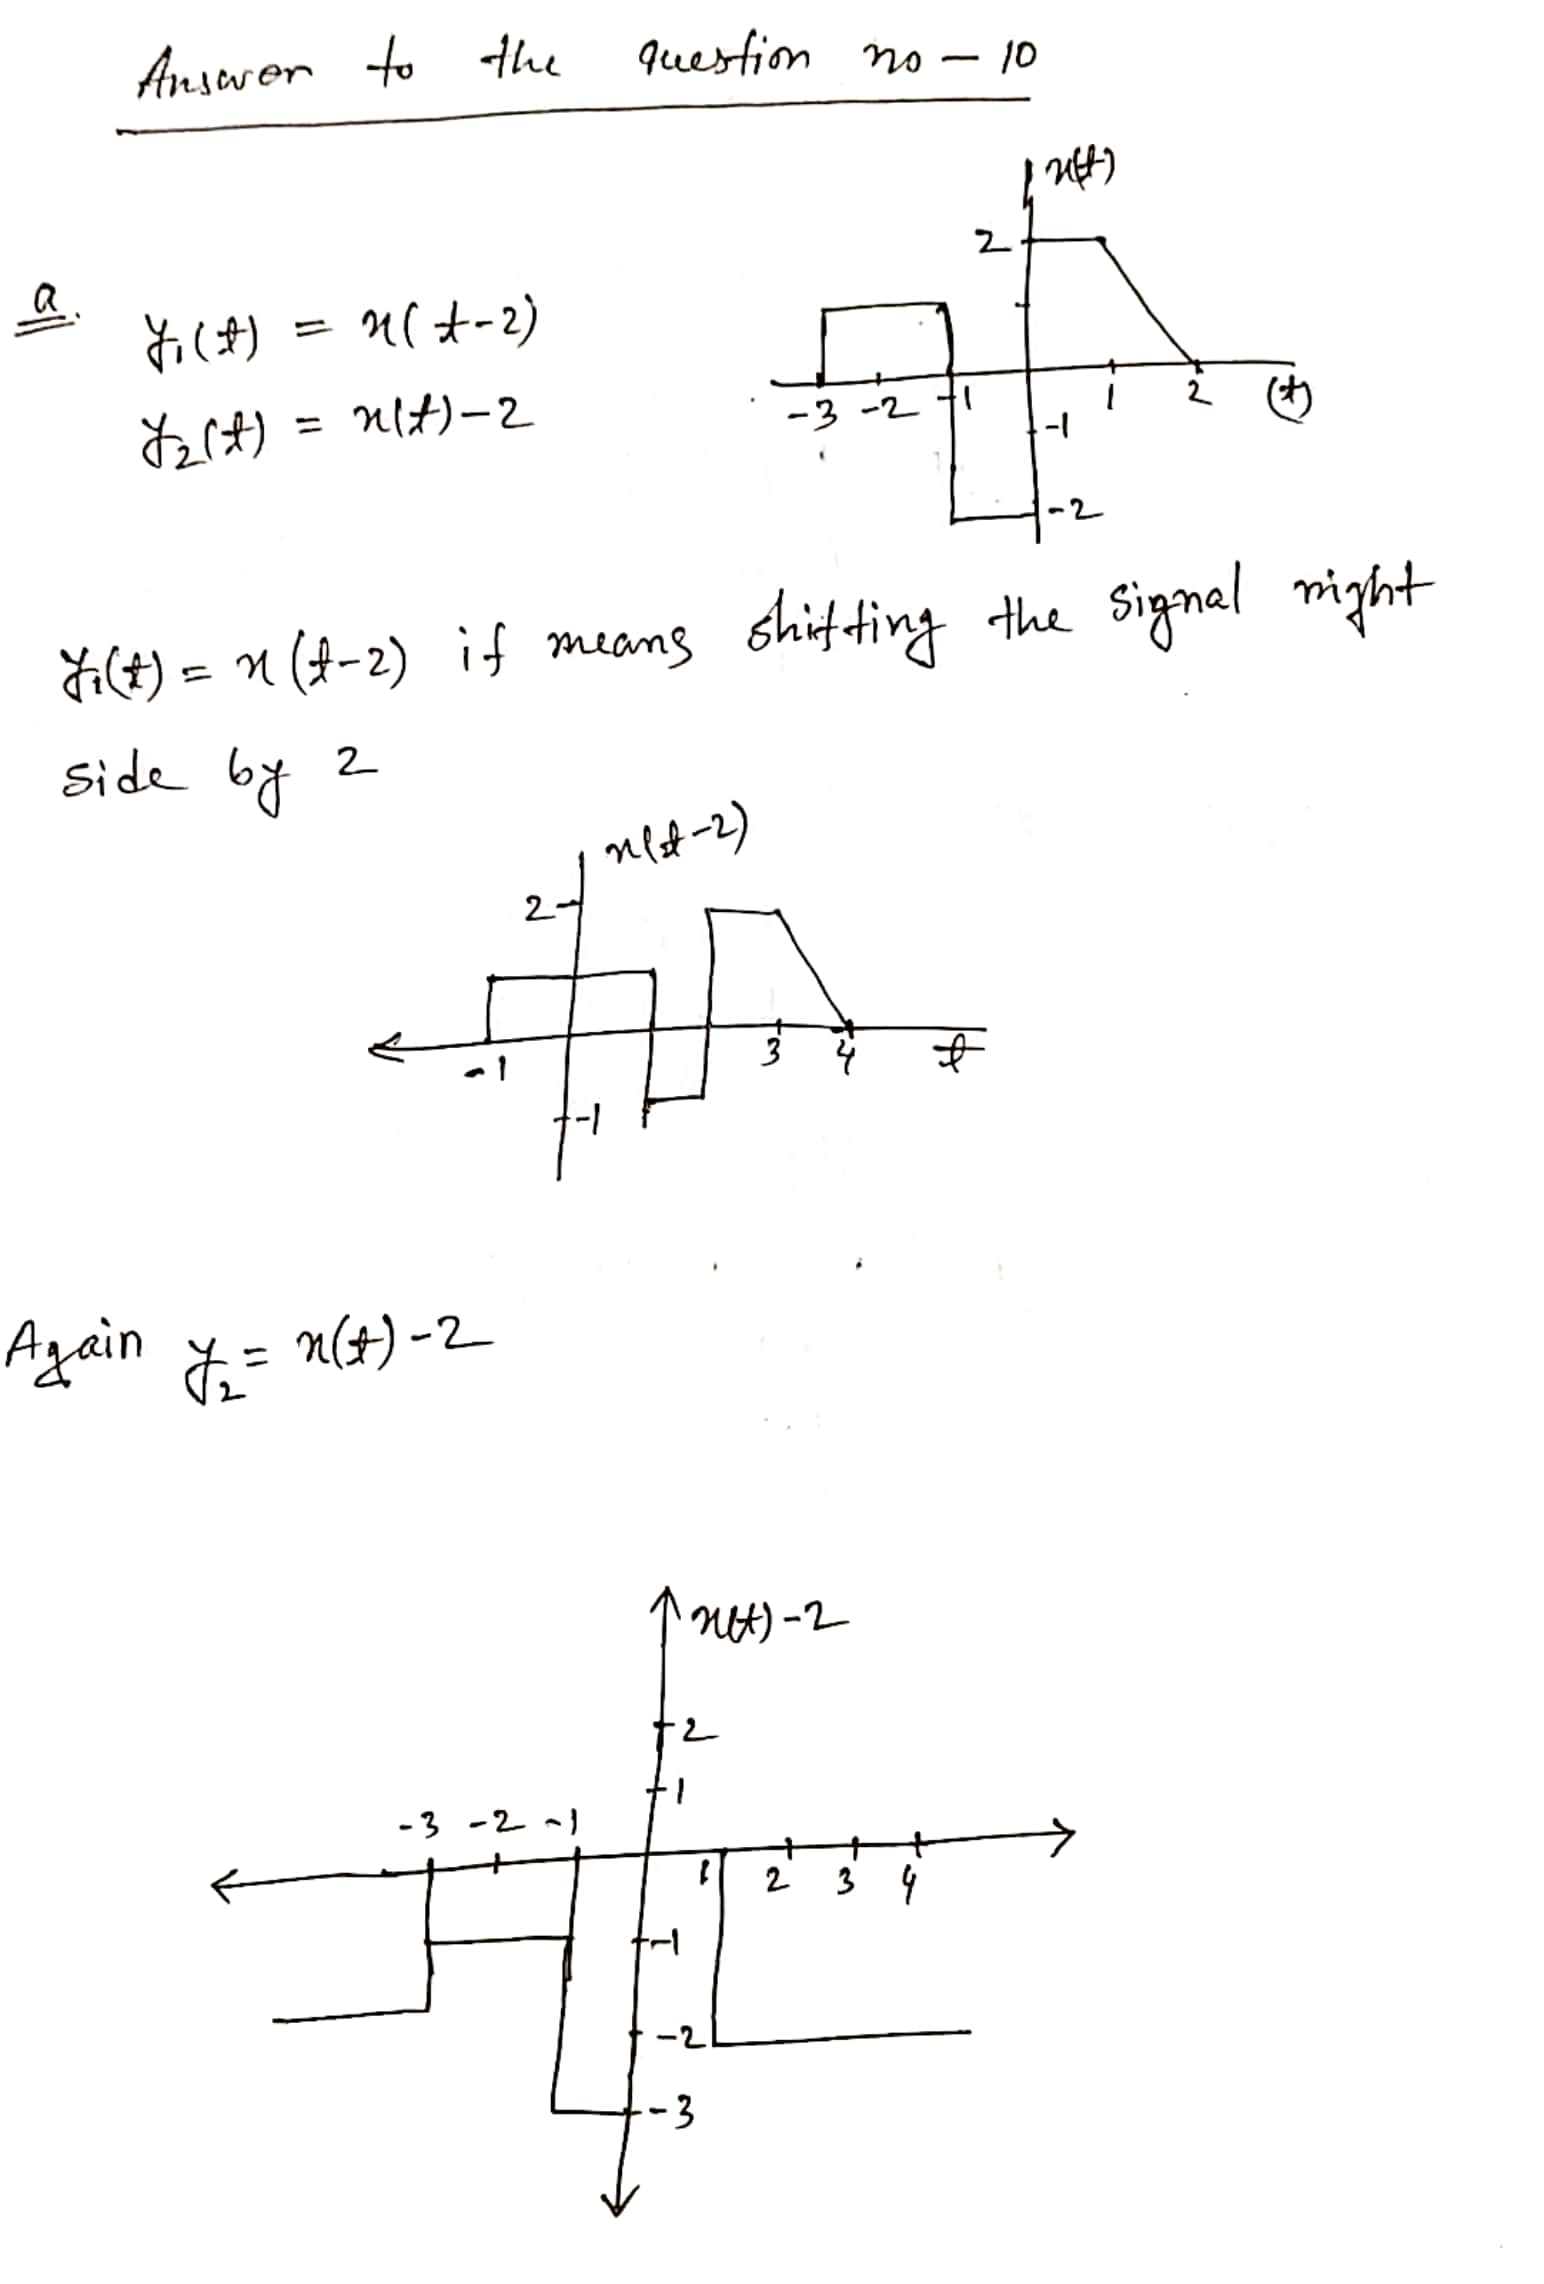 Answer to the question no - 10
x(t)
2
a. y₁(t) = x(t-2)
-3 -2 -1 1 2 (t)
y₂(t) = x(t)-2
-1
-2
y₁(t) = x(t-2) it means shifting the signal right
side by 2
x(t-2)
2
-1 3 4 t
-1
Again y₂ = x(t)-2
x(t)-2
2
1
-3 -2 -1
1 2 3 4
-1
-2
-3